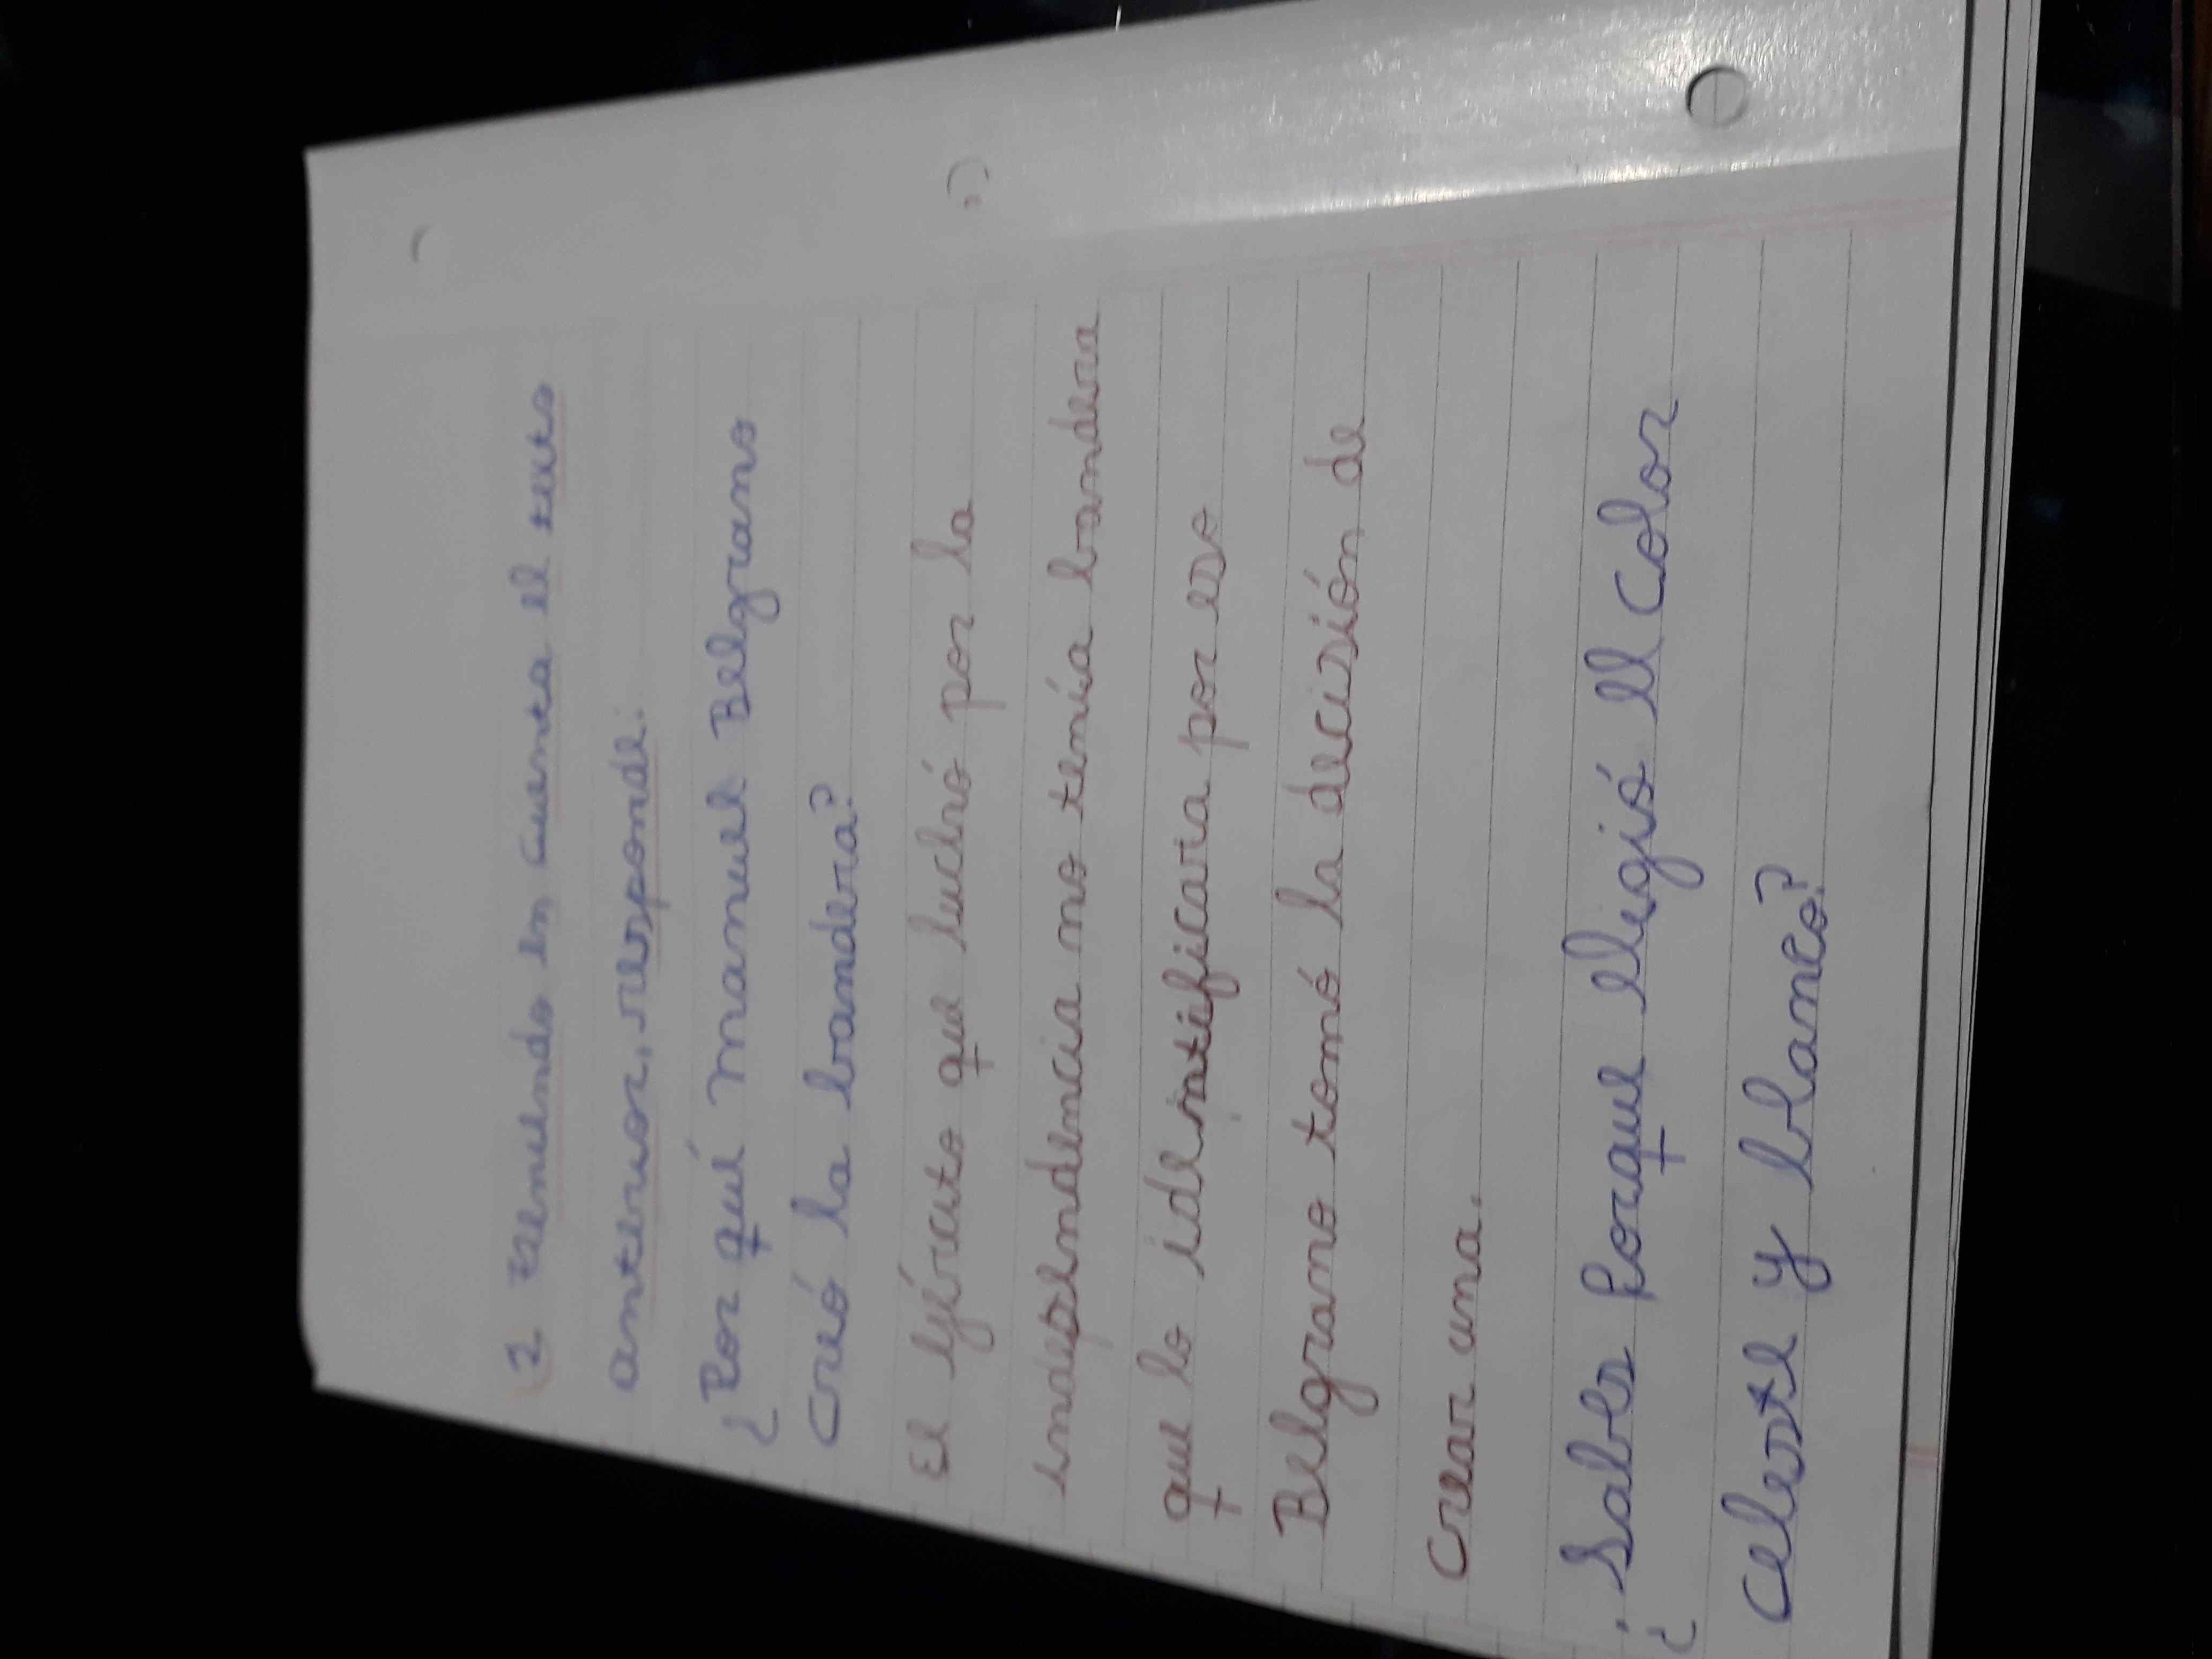 2 Teniendo en cuenta el texto
anterior, respondé:
¿Por qué Manuel Belgrano
creó la bandera?
El ejército que luchó por la
independencia no tenía bandera
que lo identificara por eso
Belgrano tomó la decisión de
crear una.
¿Sabes Porque eligió el color
celeste y blanco?